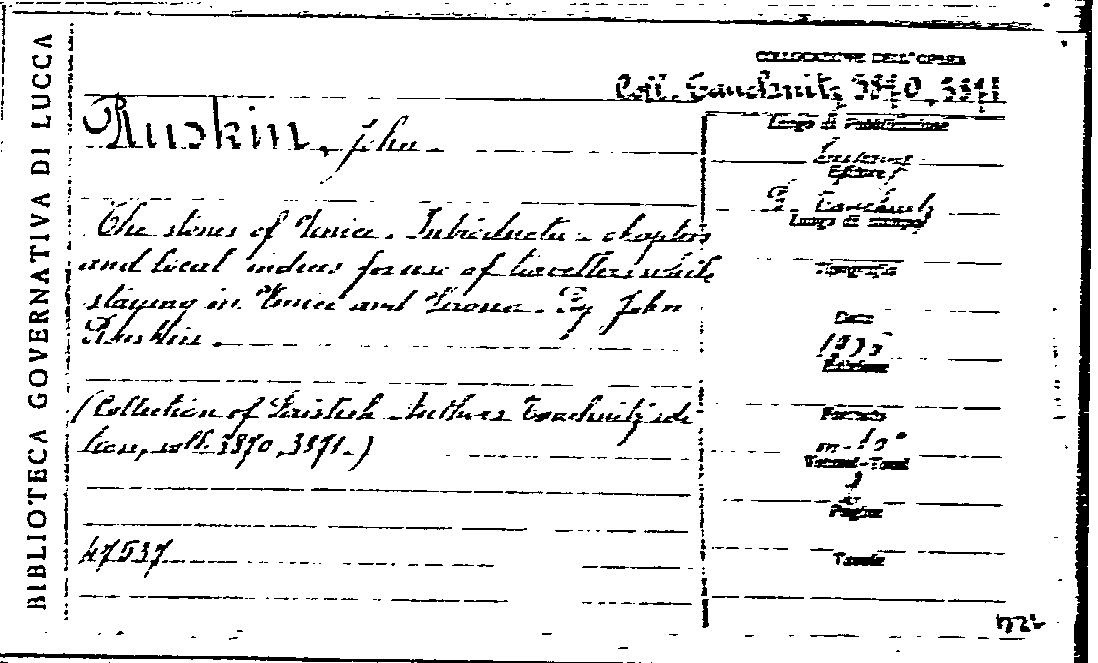 BIBLIOTECA GOVERNATIVA DI LUCCA
COLLOCAZIONE DELL'OPERA
Coll. Tauchnitz 3870, 3871
Ruskin, John
Luogo di Pubblicazione
Editore
B. Tauchnitz
Luogo di stampa
The stones of Venice. Introductu. chapters
and local indices for use of travellers while
staying in Venice and Verona. By John
Ruskin.
Tipografia
Data
Edizione
(Collection of British Authors Tauchnitz edi-
tion, voll. 3870, 3871.)
Formato
Volumi-Tomi
Pagine
47537
Tavole